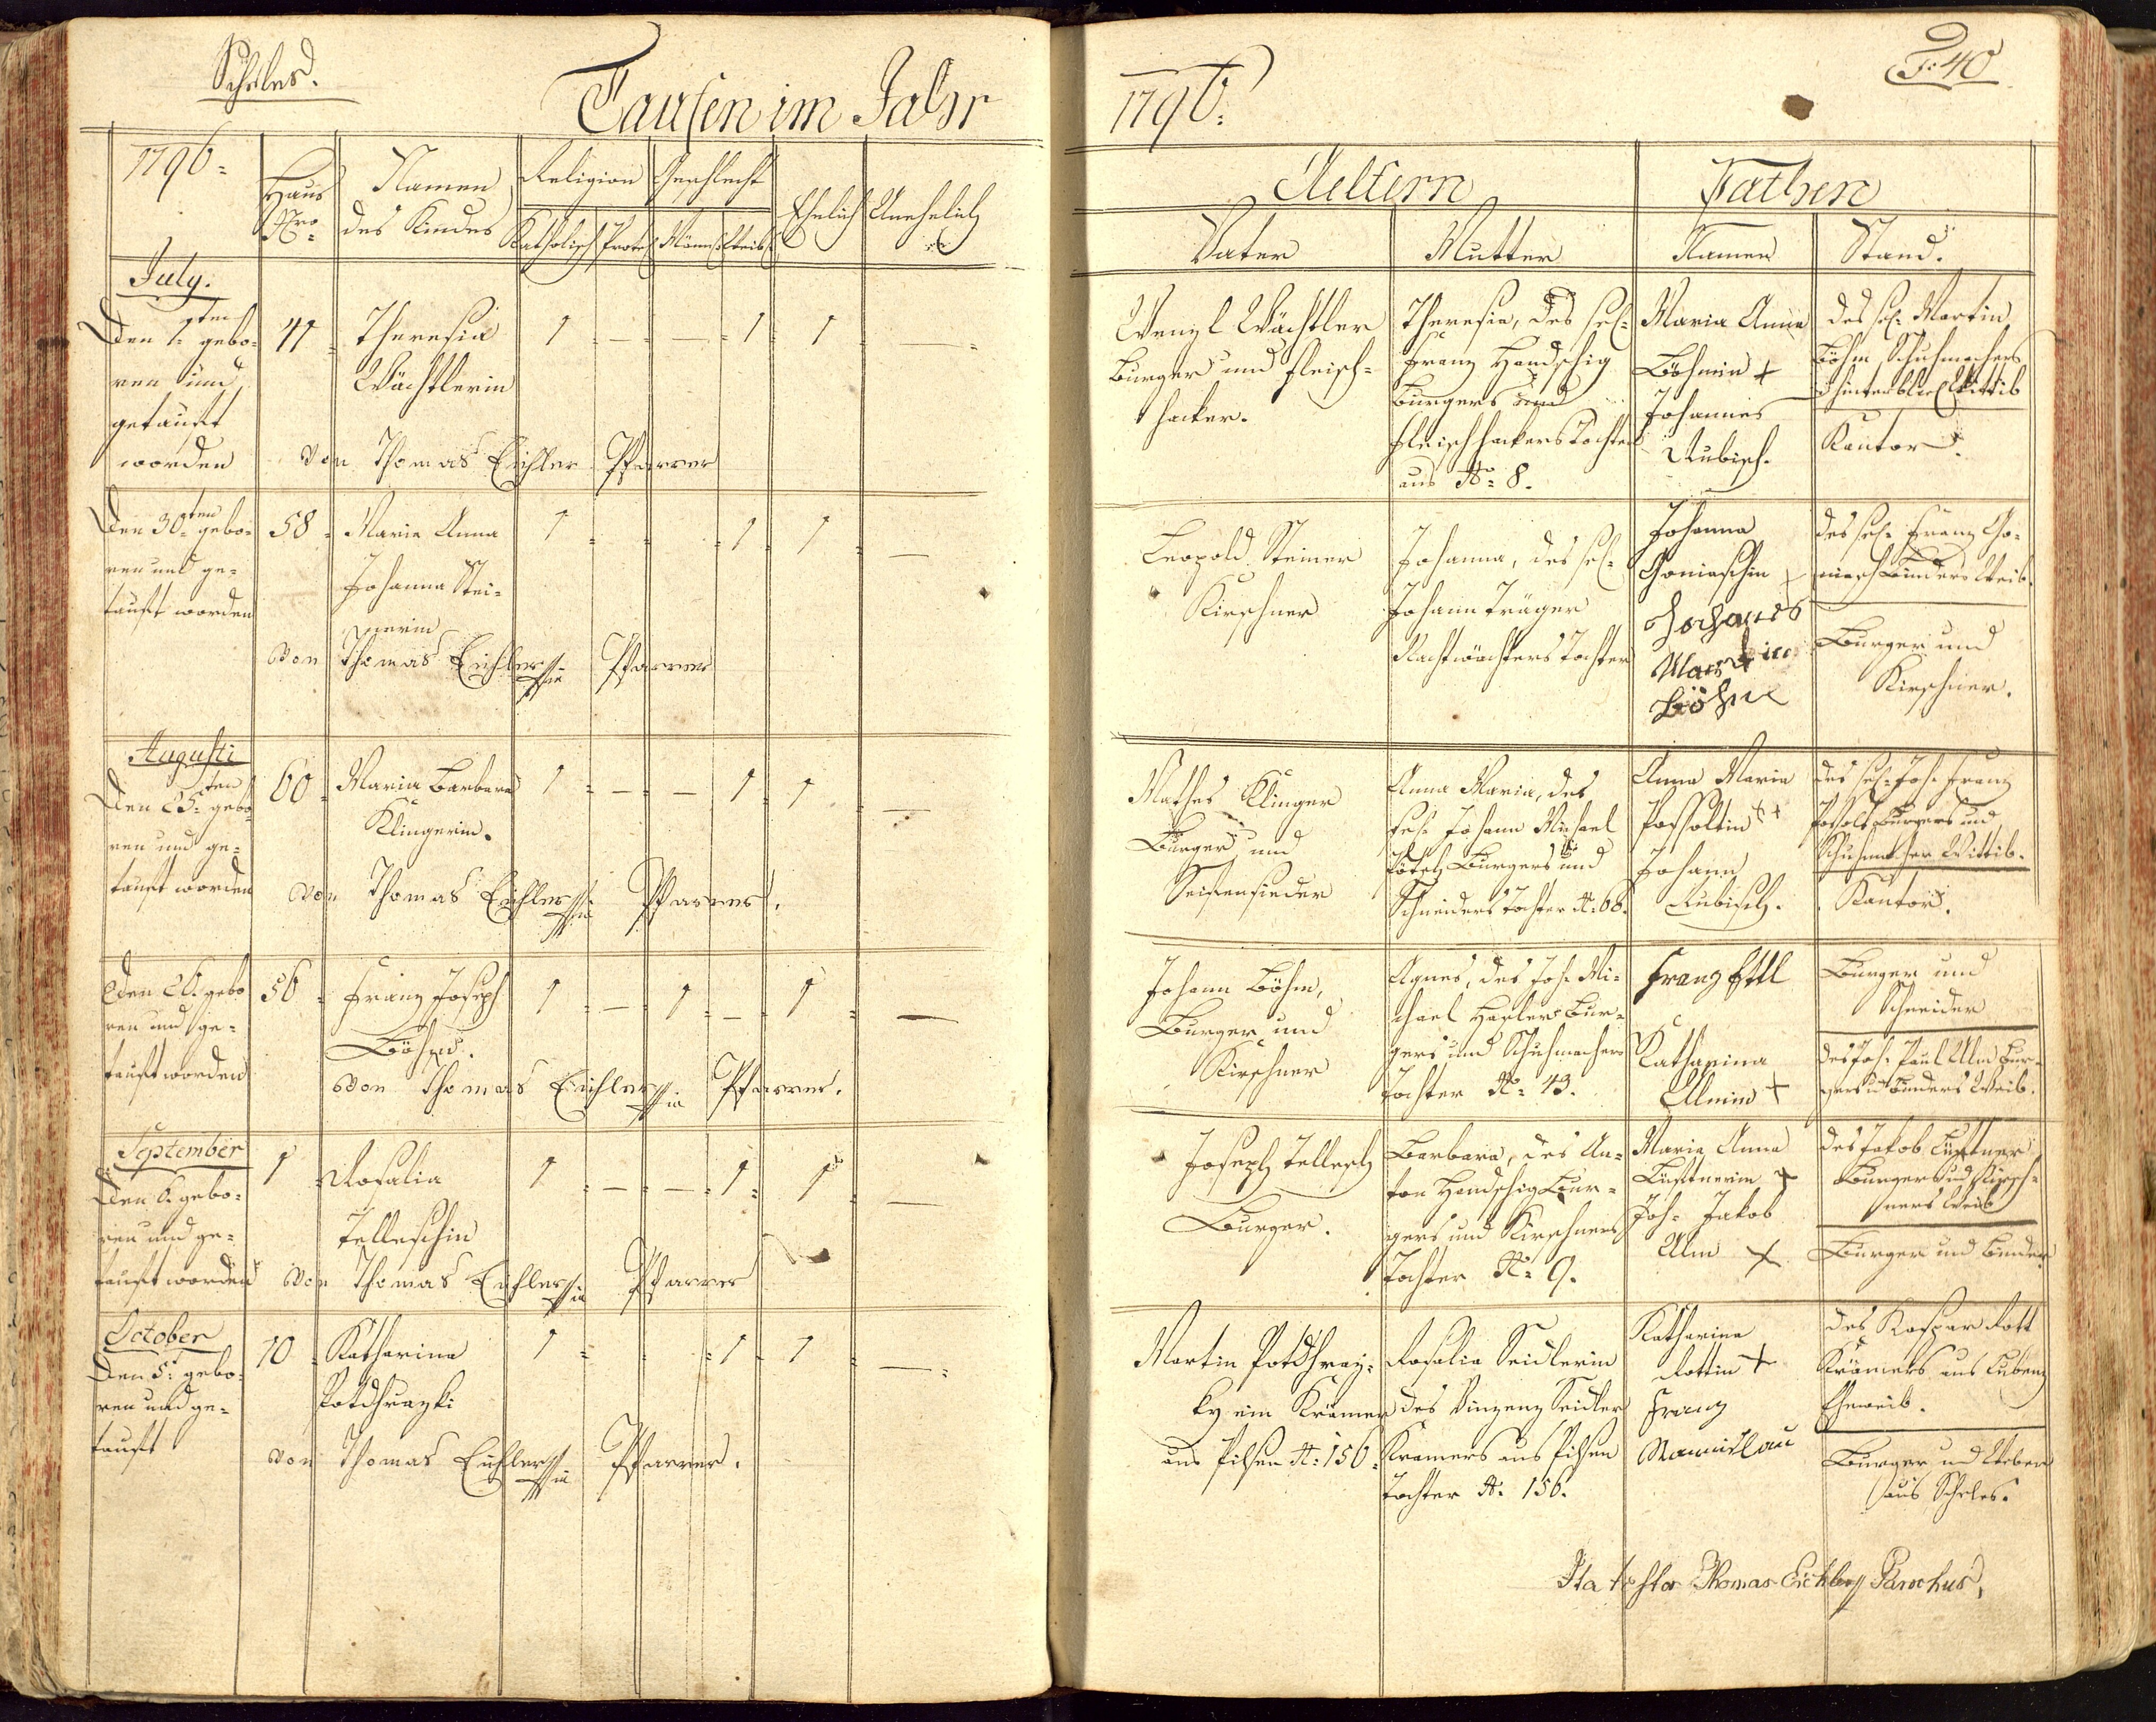 Scheles.
Taufen im Jahr
1796:
F: 40
1796:
Haus
Nro:
Namen
des Kindes
Religion
Katholisch
Protes
Geschlecht
Männ:
Weib:
Ehelich
Unehelich
Aeltern
Vater
Mutter
Pathen
Namen
Stand.
July.
Den 1ten gebo-
ren und
getauft
worden
41
Theresia
Wächtlerin
1
1
1
von Thomas Eichler Pfarrer
Wenzl Wächtler
Burger und Fleisch-
hacker.
Theresia, des
Franz Handschig
Burgers und
Fleischhackers Tochter
aus N: 8.
Maria Anna
Böhmin +
Johannes
Rubisch.
des Martin
Böhm Schuhmachers
Wittib
Kantor.
Den 30ten gebo-
ren und ge-
tauft worden
58
Maria Anna
Johanna Stei-
nerin
1
1
1
von Thomas Eichler Pfarrer
Leopold Steiner
Kirschner
Johanna, des
Johann Träger
Nachtwächters Tochter
Johanna
Johanes
Martin
Böhm
des Franz
Binders Weib.
Burger und
Kirschner.
Augusti
Den 25ten gebo-
ren und ge-
tauft worden
60
Maria Barbara
Klingerin.
1
1
1
von Thomas Eichler Pfarrer.
Mathes Klinger
Burger und
Seifensieder
Anna Maria, des
Johann Michael
Burgers und
Schneiders Tochter N: 68.
Anna Maria
++
Johann
Rubisch.
des Joh. Franz
Burgers und
Schuhmacher Wittib.
Kantor.
Den 26. gebo
ren und ge-
tauft worden
56
Franz Joseph
Böhm.
1
1
1
von Thomas Eichler Pfarrer.
Johann Böhm,
Burger und
Kirschner
Agnes, des Joh. Mi-
chael Bur-
gers und Schuhmachers
Tochter N: 43.
Franz Ettl
Katharina
Ulmin +
Burger und
Schneider
des Joh. Paul Ulm Bur-
gers Binders Weib.
September
Den 6. gebo-
ren und ge-
tauft worden
1
Rosalia
Telleschin
1
1
1
von Thomas Eichler Pfarrer
Joseph Tellesch
Burger.
Barbara, des An-
ton Handschig Bur-
gers und Kirschners
Tochter N: 9.
Maria Anna
Luftnerin +
Joh: Jakob
Ulm +
des Jakob Luftner
Burgers und Kirsch-
ners Weib
Burger und Binder.
October
Den 5: gebo-
ren und ge-
tauft
70
Katharina
Potdhrazki
1
1
1
von Thomas Eichler Pfarrer.
Martin Potdhraz-
ky ein Krämer
aus Pilsen N: 156.
Rosalia Seidlerin
des Vinzenz Seidler
Kramers aus Pilsen
Tochter N: 156.
Katharina
Rottin +
Franz
des Kaspar Rott
Krämers aus Lubenz
Eheweib.
Burger und Weber
aus Scheles.
Ita testor Thomas Eichler Parochus,